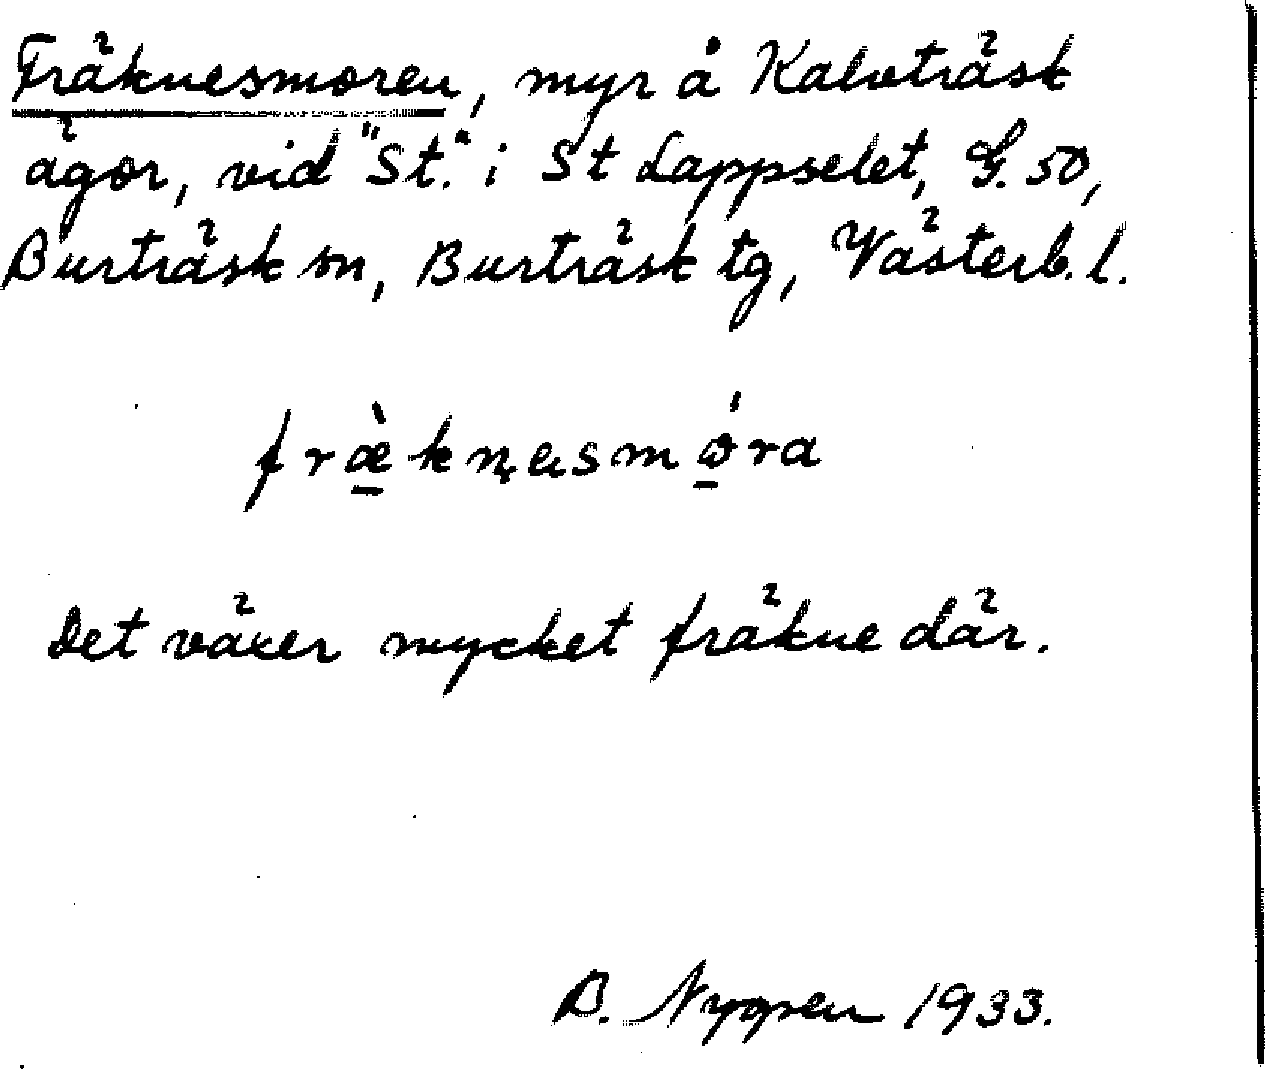 Fräknesmoren, myr å Kalvträsk
ägor, vid "St." i St Lappselet, G. 50,
Burträsk sn, Burträsk tg, Västerb. l.
fræ̀knesmóra
Det växer mycket fräkne där.
B. Nygren 1933.